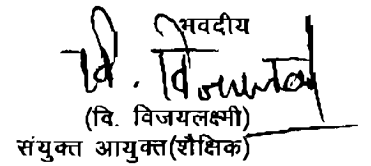 भवदीय
वि.
(वि. विजयलक्ष्मी)
संयुक्त आयुक्त(शैक्षिक)